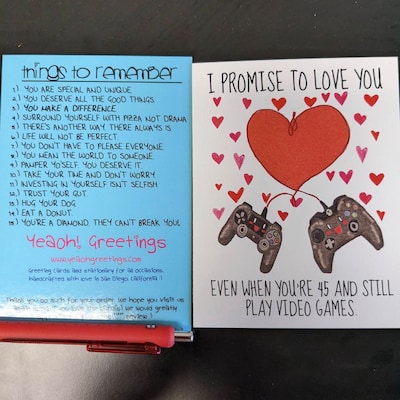 things to remember
1) YOU ARE SPECIAL AND UNIQUE.
2) YOU DESERVE ALL THE GOOD THINGS.
3) YOU MAKE A DIFFERENCE.
4) SURROUND YOURSELF WITH PIZZA NOT DRAMA
5) THERE'S ANOTHER WAY. THERE ALWAYS IS.
6) LIFE WILL NOT BE PERFECT.
7) YOU DON'T HAVE TO PLEASE EVERYONE.
8) YOU MEAN THE WORLD TO SOMEONE.
9) PAMPER YO'SELF. YOU DESERVE IT.
10) TAKE YOUR TIME AND DON'T WORRY.
11) INVESTING IN YOURSELF ISN'T SELFISH.
12) TRUST YOUR GUT.
13) HUG YOUR DOG.
14) EAT A DONUT.
15) YOU'RE A DIAMOND. THEY CAN'T BREAK YOU!
Yeaoh! Greetings
www.yeaohgreetings.com
Greeting cards and stationary for all occasions,
handcrafted with love in San Diego, California!
Thank you so much for your order, we hope you visit us
would greatly
review!
I PROMISE TO LOVE YOU
EVEN WHEN YOU'RE 45 AND STILL
PLAY VIDEO GAMES.